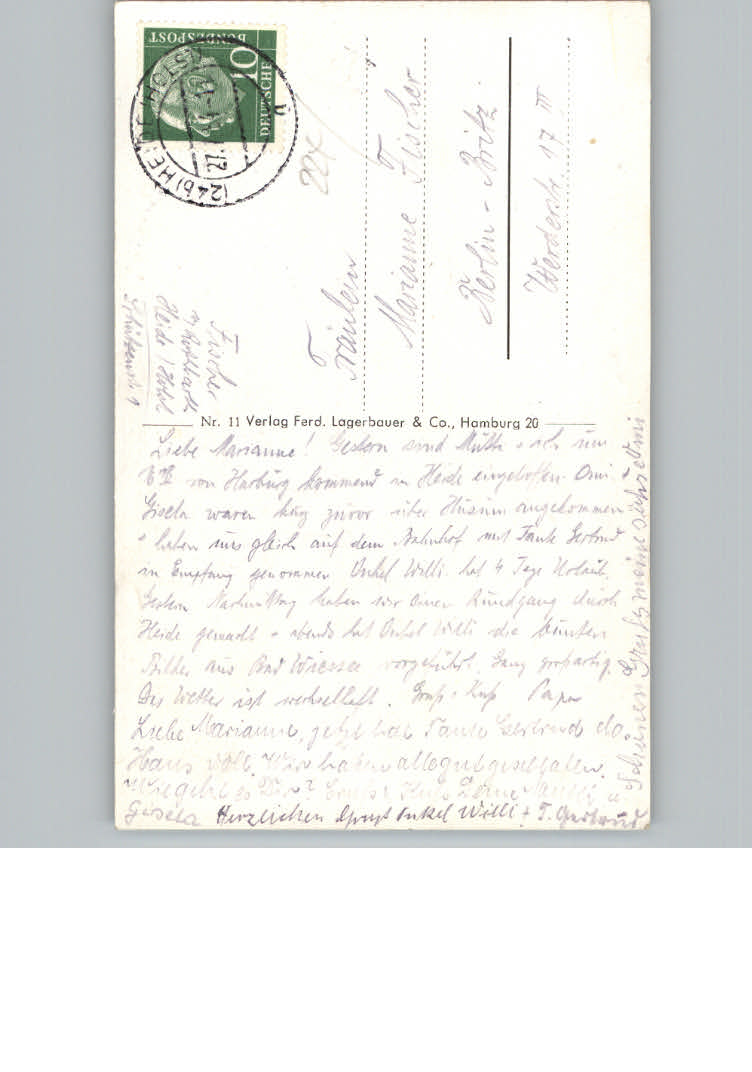 DEUTSCHE
BUNDESPOST
10
(24b) HEIDE (HOLST)
27.
224
Fräulein
Marianne Fischer
Berlin-Britz
Werderstr. 17 III
Fischer
Heide / Holst
Nr. 11 Verlag Ferd. Lagerbauer & Co., Hamburg 20
Liebe Marianne! Gestern sind Mutti + ich um
von Harburg kommend in Heide eingetroffen. Omi +
Gisela waren kurz zuvor über Husum angekommen
+ haben uns gleich auf dem Bahnhof mit Tante Gertrud
in Empfang genommen. Onkel Willi hat 4 Tage Urlaub.
Gestern Nachmittag haben wir einen Rundgang durch
Heide gemacht + abends hat Onkel Willi die bunten
Bilder aus Bad Wiessee vorgeführt. Ganz großartig.
Das Wetter ist wechselhaft. Gruß + Kuß Papa
Liebe Marianne, jetzt hat Tante Gertrud das
Haus voll. Wir haben alle gut geschlafen.
Wie geht es Dir? Gruß + Kuß Deine Mutti u.
Gisela Herzlichen Gruß Onkel Willi + T. Gertrud
Schönen Gruß meine